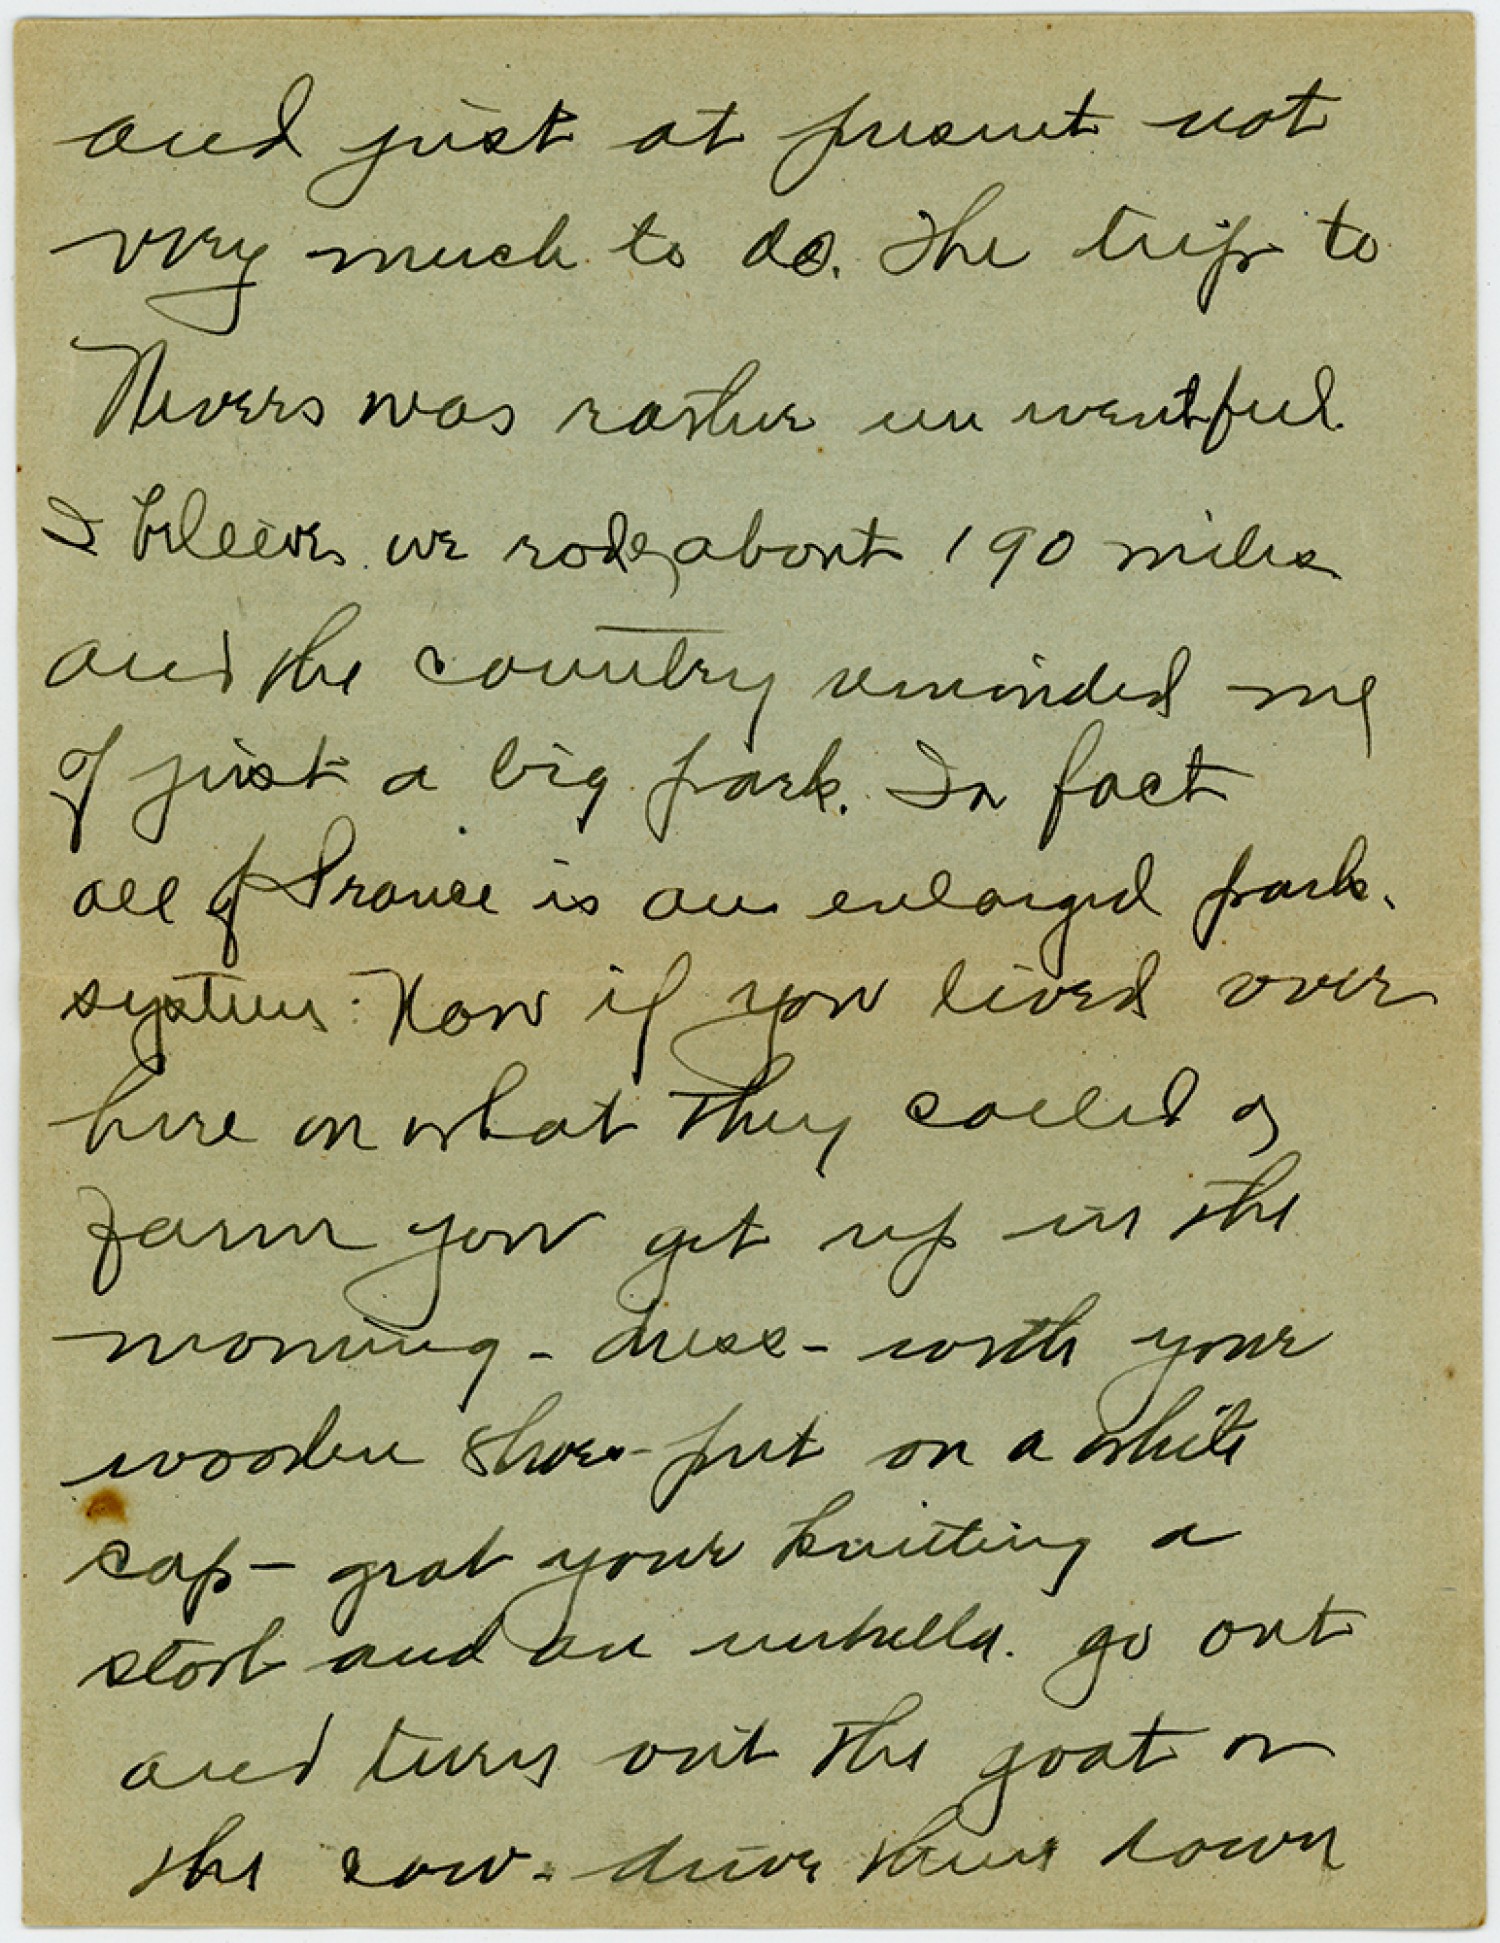 and just at present not
very much to do. The trip to
Nevers was rather un eventful.
I beleive we rode about 190 miles
and the country reminded me
of just a big park. In fact
all of France is an enlarged park
system. Now if you lived over
here on what they called a
farm you get up in the
morning - dress - with your
wooden shoes - put on a white
cap - grab your knitting a
stool and an umbrella. go out
and turn out the goat or
the cow - drive them down